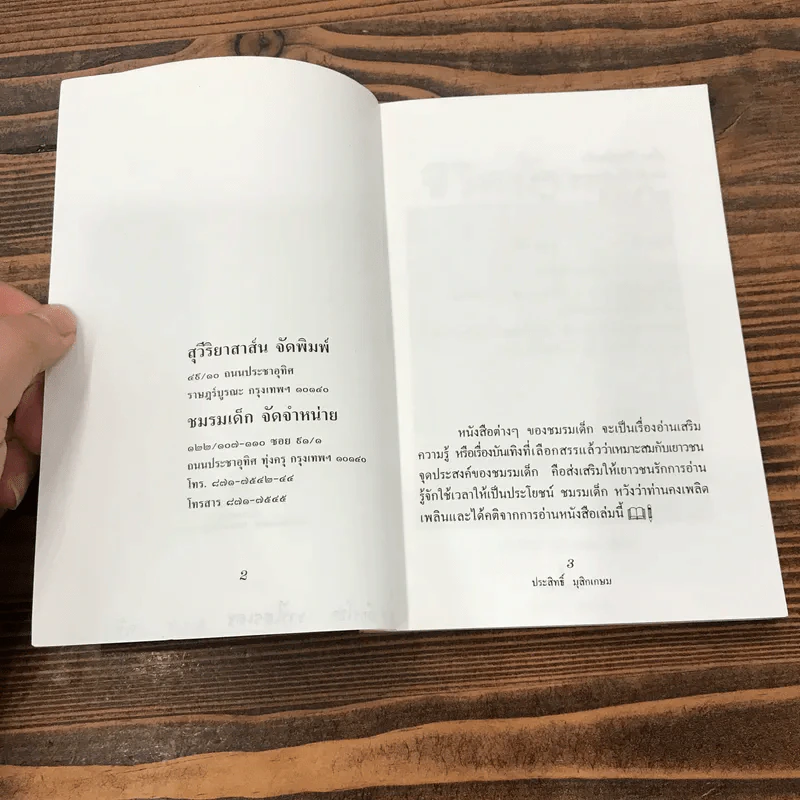 สุวีริยาสาส์น จัดพิมพ์
๔๙/๑๐ ถนนประชาอุทิศ
ราษฎร์บูรณะ กรุงเทพฯ ๑๐๑๔๐
ชมรมเด็ก จัดจำหน่าย
๑๒๒/๑๐๗-๑๑๐ ซอย ๙๑/๑
ถนนประชาอุทิศ ทุ่งครุ กรุงเทพฯ ๑๐๑๔๐
โทร. ๘๗๑-๗๕๔๒-๔๔
โทรสาร ๘๗๑-๗๕๔๕
2
หนังสือต่างๆ ของชมรมเด็ก จะเป็นเรื่องอ่านเสริม
ความรู้ หรือเรื่องบันเทิงที่เลือกสรรแล้วว่าเหมาะสมกับเยาวชน
จุดประสงค์ของชมรมเด็ก คือส่งเสริมให้เยาวชนรักการอ่าน
รู้จักใช้เวลาให้เป็นประโยชน์ ชมรมเด็ก หวังว่าท่านคงเพลิด
เพลินและได้คติจากการอ่านหนังสือเล่มนี้
3
ประสิทธิ์ มุสิกเกษม